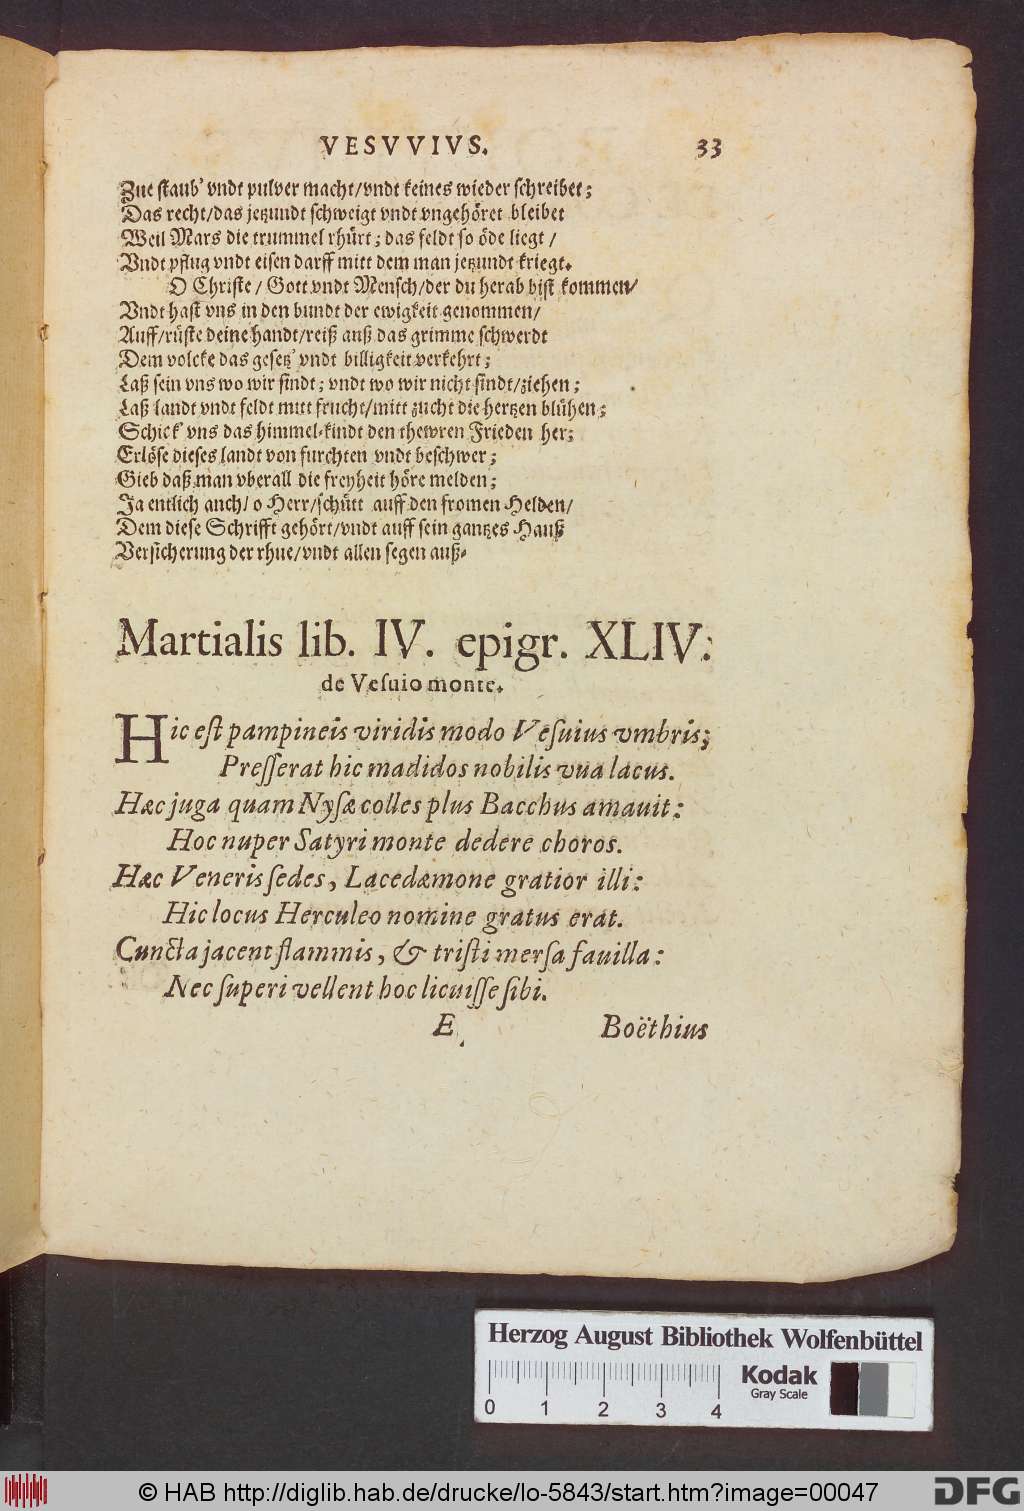 VESVVIVS. 33
Zue staub' vndt pulver macht/vndt keines wieder schreibet;
Das recht/das jetzundt schweigt vndt vngehöret bleibet
Weil Mars die trummel rhürt; das feldt so öde liegt /
Vndt pflug vndt eisen darff mitt dem man jetzundt kriegt.
O Christe / Gott vndt Mensch/der du herab bist kommen/
Vndt hast vns in den bundt der ewigkeit genommen/
Auff/rüste deine handt/reiß auß das grimme schwerdt
Dem volcke das gesetz' vndt billigkeit verkehrt;
Laß sein vns wo wir sindt; vndt wo wir nicht sindt/ziehen;
Laß landt vndt feldt mitt frucht/mitt zucht die hertzen blühen;
Schick' vns das himmel-kindt den thewren Frieden her;
Erlöse dieses landt von furchten vndt beschwer;
Gieb daß man vberall die freyheit höre melden;
Ja entlich auch/ o Herr/schütt auff den fromen Helden/
Dem diese Schrifft gehört/vndt auff sein gantzes Hauß
Versicherung der rhue/vndt allen segen auß.
Martialis lib. IV. epigr. XLIV:
de Vesuio monte.
Hic est pampineis viridis modo Vesuius vmbris;
Presserat hic madidos nobilis vua lacus.
Hæc juga quam Nysæ colles plus Bacchus amauit:
Hoc nuper Satyri monte dedere choros.
Hæc Veneris sedes, Lacedæmone gratior illi:
Hic locus Herculeo nomine gratus erat.
Cuncta jacent flammis, & tristi mersa fauilla:
Nec superi vellent hoc licuisse sibi.
E Boëthius
Herzog August Bibliothek Wolfenbüttel
0 1 2 3 4
Kodak
Gray Scale
© HAB http://diglib.hab.de/drucke/lo-5843/start.htm?image=00047
DFG